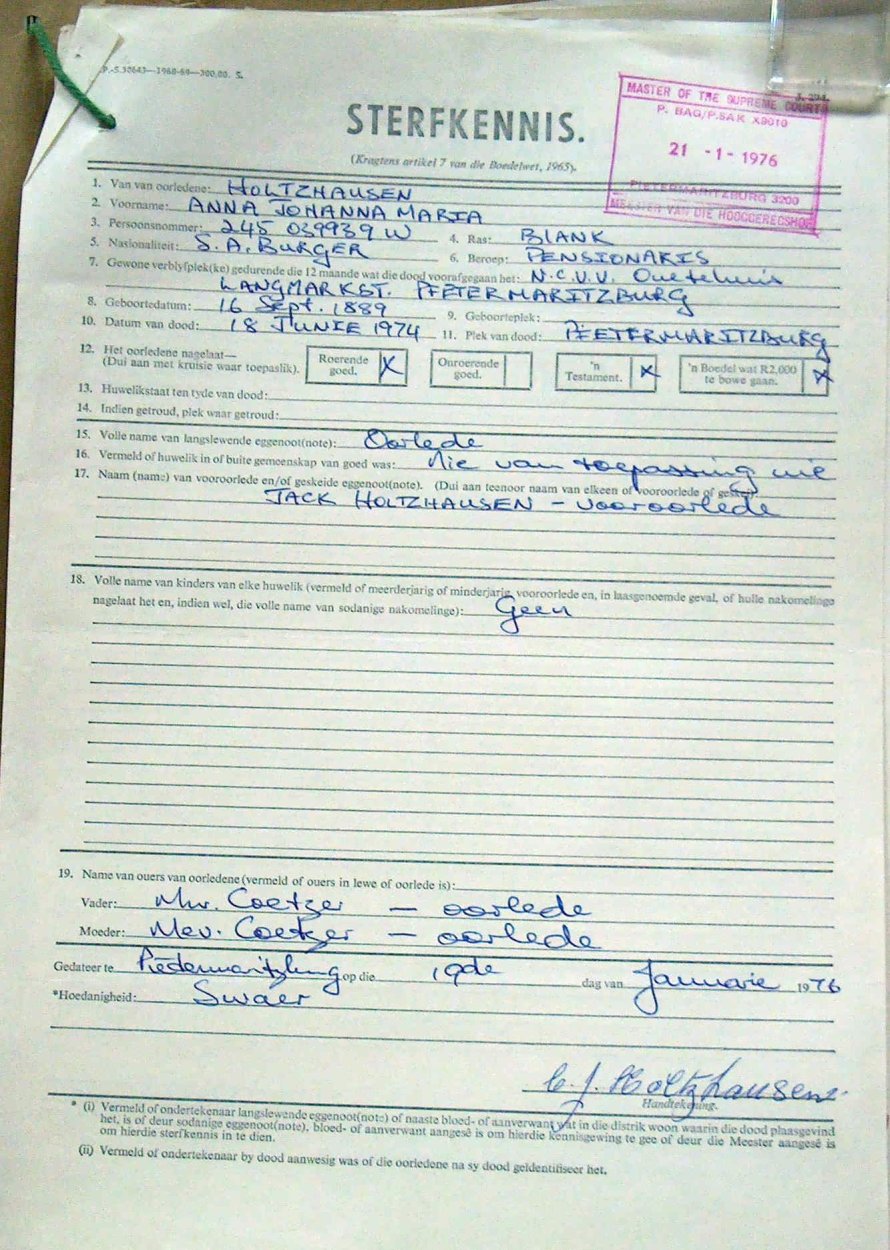 P.-S.30643—1968-69—300,00. S.
J. 294.
MASTER OF THE SUPREME COURT
P. BAG/P.SAK X9010
21 -1- 1976
PIETERMARITZBURG 3200
MEESTER VAN DIE HOOGGEREGSHOF
STERFKENNIS.
(Kragtens artikel 7 van die Boedelwet, 1965).
1. Van van oorledene: HOLTZHAUSEN
2. Voorname: ANNA JOHANNA MARIA
3. Persoonsnommer: 245 039939 W 4. Ras: BLANK
5. Nasionaliteit: S.A. BURGER 6. Beroep: PENSIONARIS
7. Gewone verblyfplek(ke) gedurende die 12 maande wat die dood voorafgegaan het: N.C.V.V. Ouetehuis
LANGMARKST. PIETERMARITZBURG
8. Geboortedatum: 16 Sept. 1889 9. Geboorteplek:
10. Datum van dood: 18 JUNIE 1974 11. Plek van dood: PIETERMARITZBURG
12. Het oorledene nagelaat—
(Dui aan met kruisie waar toepaslik).
Roerende goed. X
Onroerende goed.
'n Testament. X
'n Boedel wat R2,000 te bowe gaan. X
13. Huwelikstaat ten tyde van dood:
14. Indien getroud, plek waar getroud:
15. Volle name van langslewende eggenoot(note): Oorlede
16. Vermeld of huwelik in of buite gemeenskap van goed was: Nie van toepassing nie
17. Naam (name) van vooroorlede en/of geskeide eggenoot(note). (Dui aan teenoor naam van elkeen of vooroorlede of geskei):
JACK HOLTZHAUSEN — vooroorlede
18. Volle name van kinders van elke huwelik (vermeld of meerderjarig of minderjarig, vooroorlede en, in laasgenoemde geval, of hulle nakomelinge
nagelaat het en, indien wel, die volle name van sodanige nakomelinge): Geen
19. Name van ouers van oorledene (vermeld of ouers in lewe of oorlede is):
Vader: Mnr. Coetzer — oorlede
Moeder: Mev. Coetzer — oorlede
Gedateer te Pietermaritzburg op die 19de dag van Januarie 1976
*Hoedanigheid: Swaer
C. J. Holtzhausen
Handtekening.
* (i) Vermeld of ondertekenaar langslewende eggenoot(note) of naaste bloed- of aanverwant wat in die distrik woon waarin die dood plaasgevind
het, is of deur sodanige eggenoot(note), bloed- of aanverwant aangesê is om hierdie kennisgewing te gee of deur die Meester aangesê is
om hierdie sterfkennis in te dien.
(ii) Vermeld of ondertekenaar by dood aanwesig was of die oorledene na sy dood geïdentifiseer het.